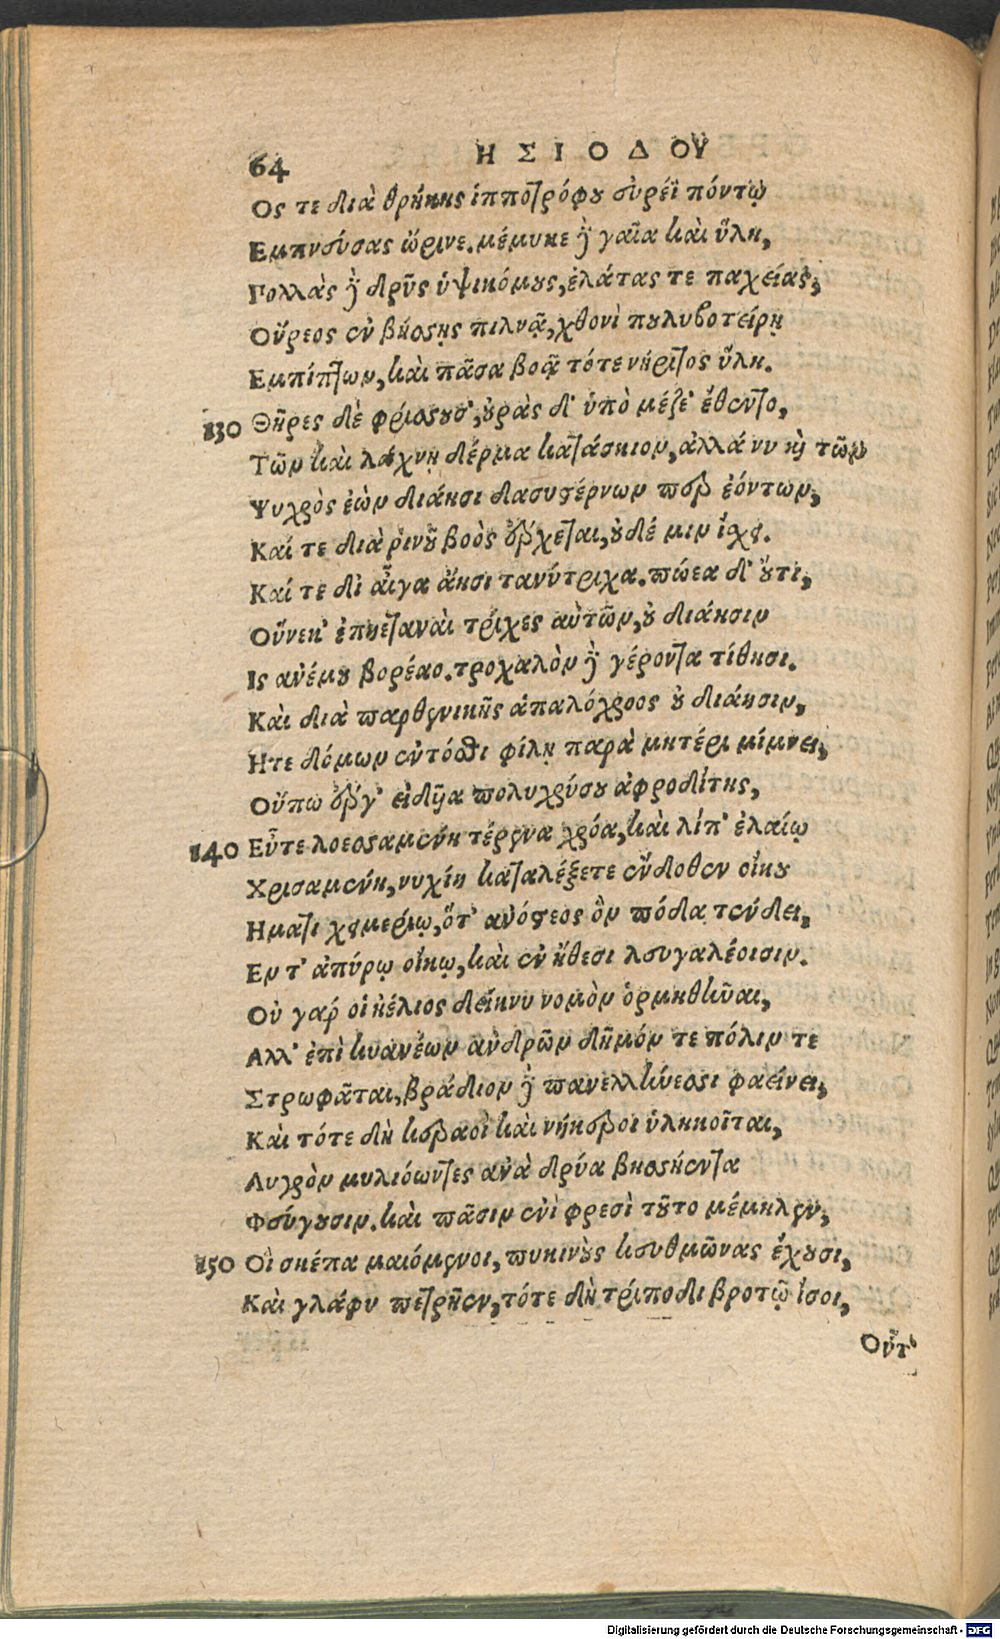 64 ΗΣΙΟΔΟΥ
Ος τε διὰ θρήκης ἱπποτρόφου εὐρέϊ πόντῳ
Εμπνεύσας ὤρινε. μέμυκε δὲ γαῖα καὶ ὕλη,
Πολλὰς δὲ δρῦς ὑψικόμους, ἐλάτας τε παχείας,
Οὔρεος ἐν βήσσῃς πιλνᾷ, χθονὶ πουλυβοτείρῃ
Εμπίπτων, καὶ πᾶσα βοᾷ τότε νήριτος ὕλη.
130 Θῆρες δὲ φρίσσουσ', οὐρὰς δ' ὑπὸ μέζε' ἔθεντο,
Τῶν καὶ λάχνῃ δέρμα κατάσκιον, ἀλλά νυ καὶ τῶν
Ψυχρὸς ἐὼν διάησι δασυστέρνων περ ἐόντων,
Καί τε διὰ ῥινοῦ βοὸς ἔρχεται, οὐδέ μιν ἴσχει.
Καί τε δι' αἶγα ἄησι τανύτριχα. πώεα δ' οὔτι,
Οὕνεκ' ἐπηεταναὶ τρίχες αὐτῶν, οὐ διάησιν
Ις ἀνέμου βορέαο. τροχαλὸν δὲ γέροντα τίθησι.
Καὶ διὰ παρθενικῆς ἁπαλόχροος οὐ διάησιν,
Ητε δόμων ἐντόσθι φίλῃ παρὰ μητέρι μίμνει,
Οὔπω ἔργ' εἰδῦια πολυχρύσου ἀφροδίτης,
140 Εὖτε λοεσσαμένη τέρενα χρόα, καὶ λίπ' ἐλαίῳ
Χρισαμένη, νυχίη καταλέξετε ἔνδοθεν οἴκου
Ηματι χειμερίῳ, ὅτ' ἀνόστεος ὃν πόδα τένδει,
Εν τ' ἀπύρῳ οἴκῳ, καὶ ἐν ἤθεσι λευγαλέοισιν.
Οὐ γάρ οἱ ἠέλιος δείκνυ νομὸν ὁρμηθῆναι,
Αλλ' ἐπὶ κυανέων ἀνδρῶν δῆμόν τε πόλιν τε
Στρωφᾶται, βράδιον δὲ πανελλήνεσσι φαείνει,
Καὶ τότε δὴ κεραοὶ καὶ νήκεροι ὑληκοῖται,
Λυγρὸν μυλιόωντες ἀνὰ δρύα βησσήεντα
Φεύγουσιν. καὶ πᾶσιν ἐνὶ φρεσὶ τοῦτο μέμηλεν,
150 Οἳ σκέπα μαιόμενοι, πυκινοὺς κευθμῶνας ἔχουσι,
Καὶ γλάφυ πετρῆεν, τότε δὴ τρίποδι βροτῷ ἶσοι,
Οὗτ'
Digitalisierung gefördert durch die Deutsche Forschungsgemeinschaft - DFG